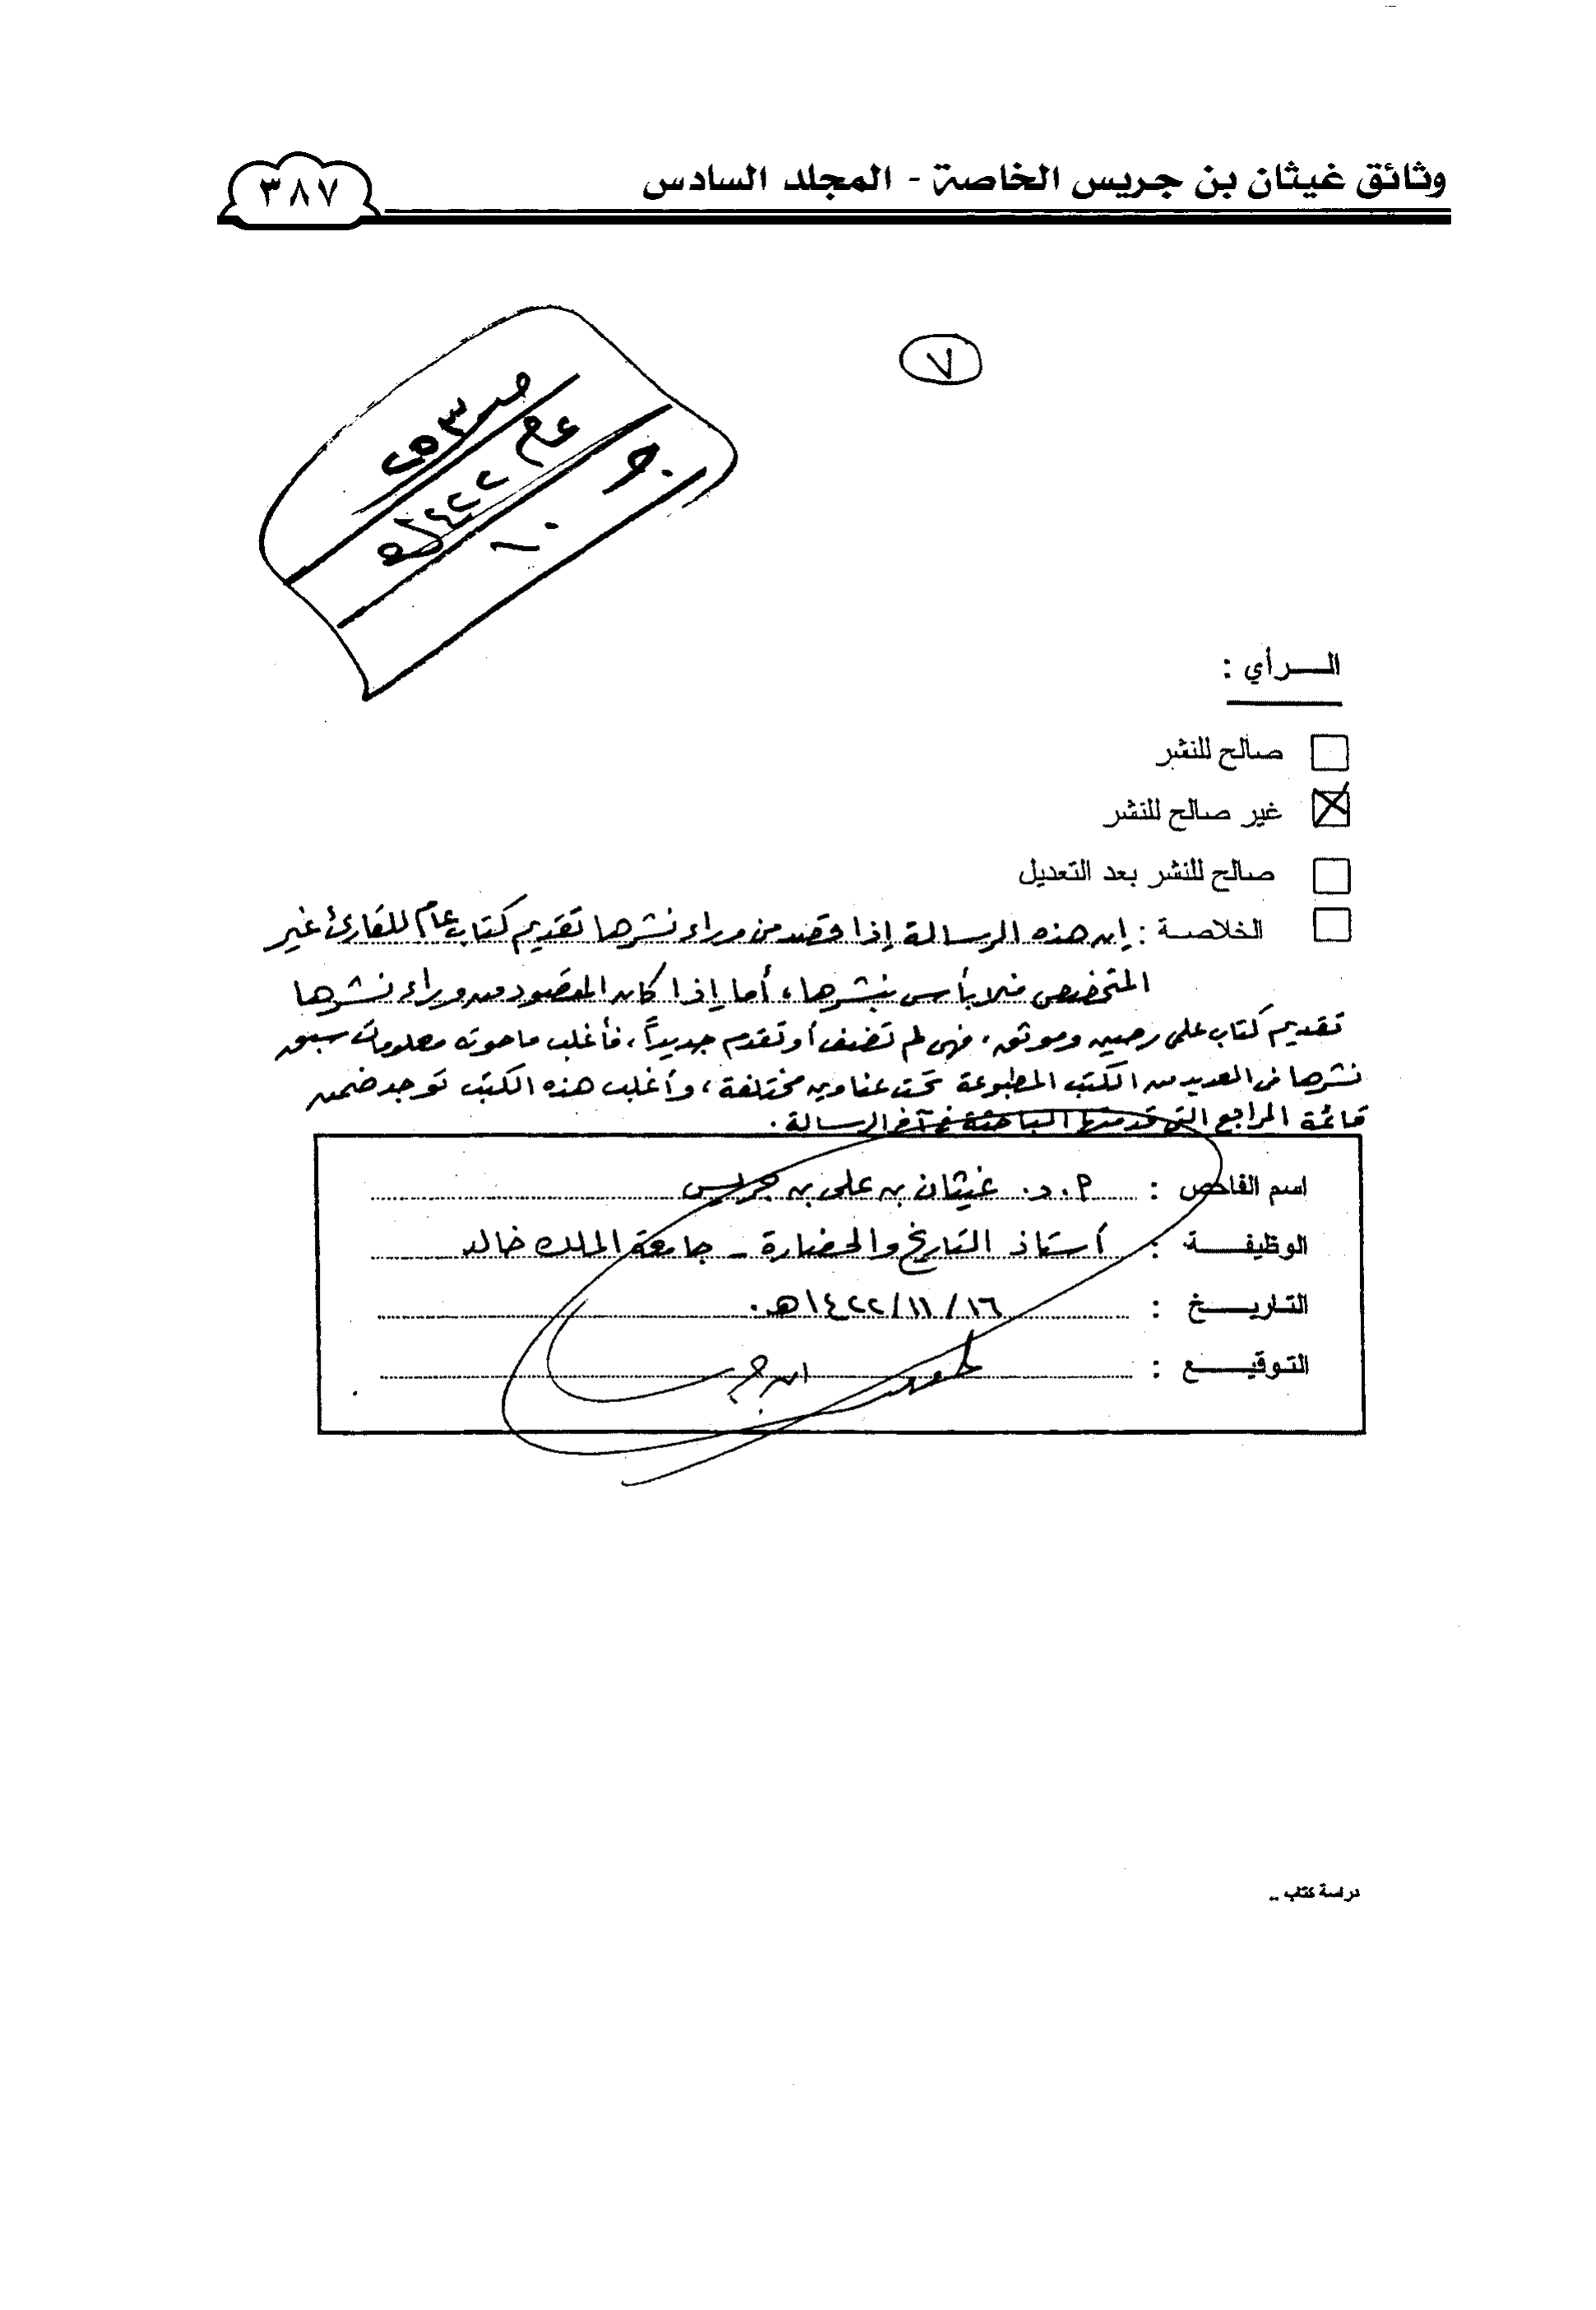 وثائق غيثان بن جريس الخاصة - المجلد السادس
٣٨٧
٧
عام
١٤٢٢هـ
الـــرأي :
صالح للنشر
غير صالح للنشر
صالح للنشر بعد التعديل
الخلاصة : إن هذه الرسالة إذا قصد من وراء نشرها تقديم كتاب عام للقارئ غير
المتخصص فلا بأس بنشرها، أما إذا كان المقصود من وراء نشرها
تقديم كتاب علمي رصين وموثق، فهي لم تضف أو تقدم جديداً، فأغلب ما حوته معلومات سبق
نشرها في العديد من الكتب المطبوعة تحت عناوين مختلفة، وأغلب هذه الكتب توجد ضمن
قائمة المراجع التي قدمتها الباحثة في آخر الرسالة.
اسم الفاحص : أ. د. غيثان بن علي بن جريس
الوظيفـــة : أستاذ التاريخ والحضارة - جامعة الملك خالد
التاريـــخ : ١٦/ ١١/ ١٤٢٢هـ.
التوقيـــع : ابن جريس
دراسة كتاب ..